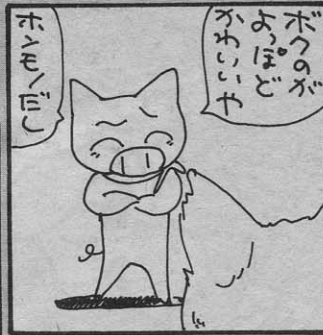 ボクのが
よっぽど
かわいいや
ホンモノだし